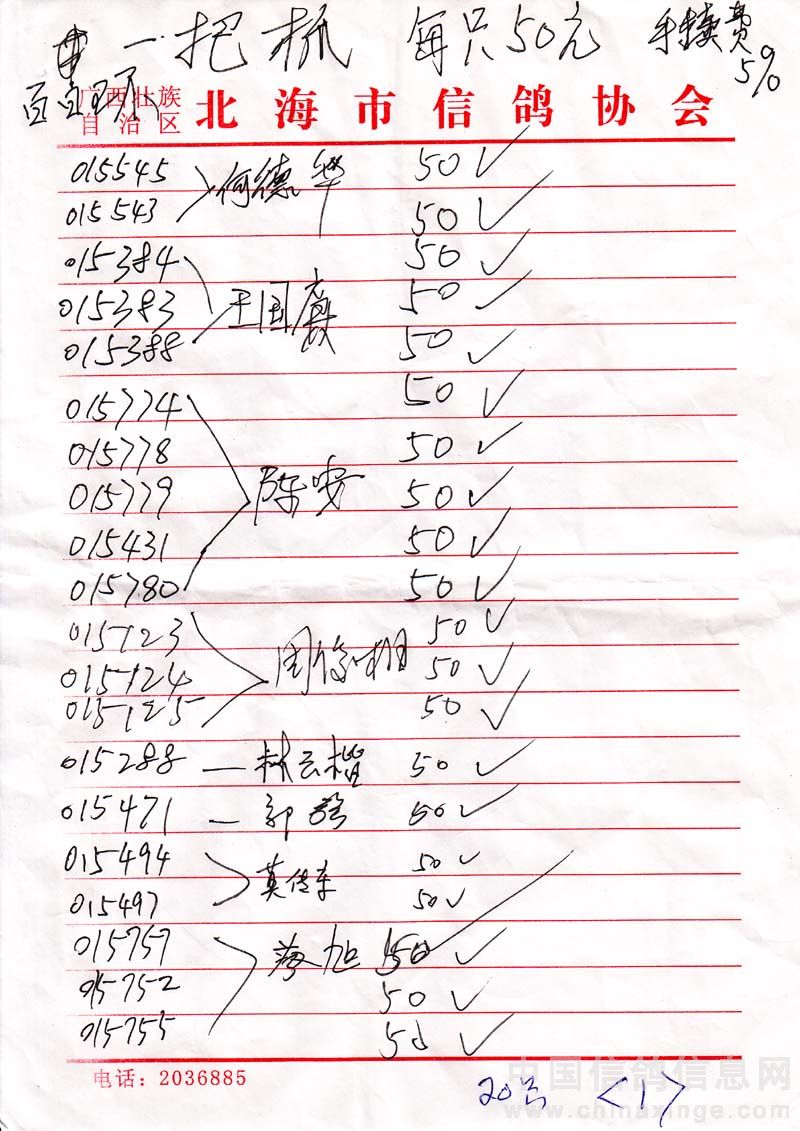 一把抓 每只50元 手续费
5%
百宝环
广西壮族
自治区 北海市信鸽协会
015545 何德华 50 ✓
015543 50 ✓
015384 50 ✓
015383 王国 50 ✓
015388 50 ✓
015774 50 ✓
015778 50 ✓
015779 陈安 50 ✓
015431 50 ✓
015780 50 ✓
015123 50 ✓
015124 周 50 ✓
015125 50 ✓
015288 — 林云楷 50 ✓
015471 — 郭 50 ✓
015494 50 ✓
015497 莫传东 50 ✓
015757 旭 50 ✓
015752 50 ✓
015755 50 ✓
电话：2036885
20名 <1>
中国信鸽信息网
www.chinaxinge.com